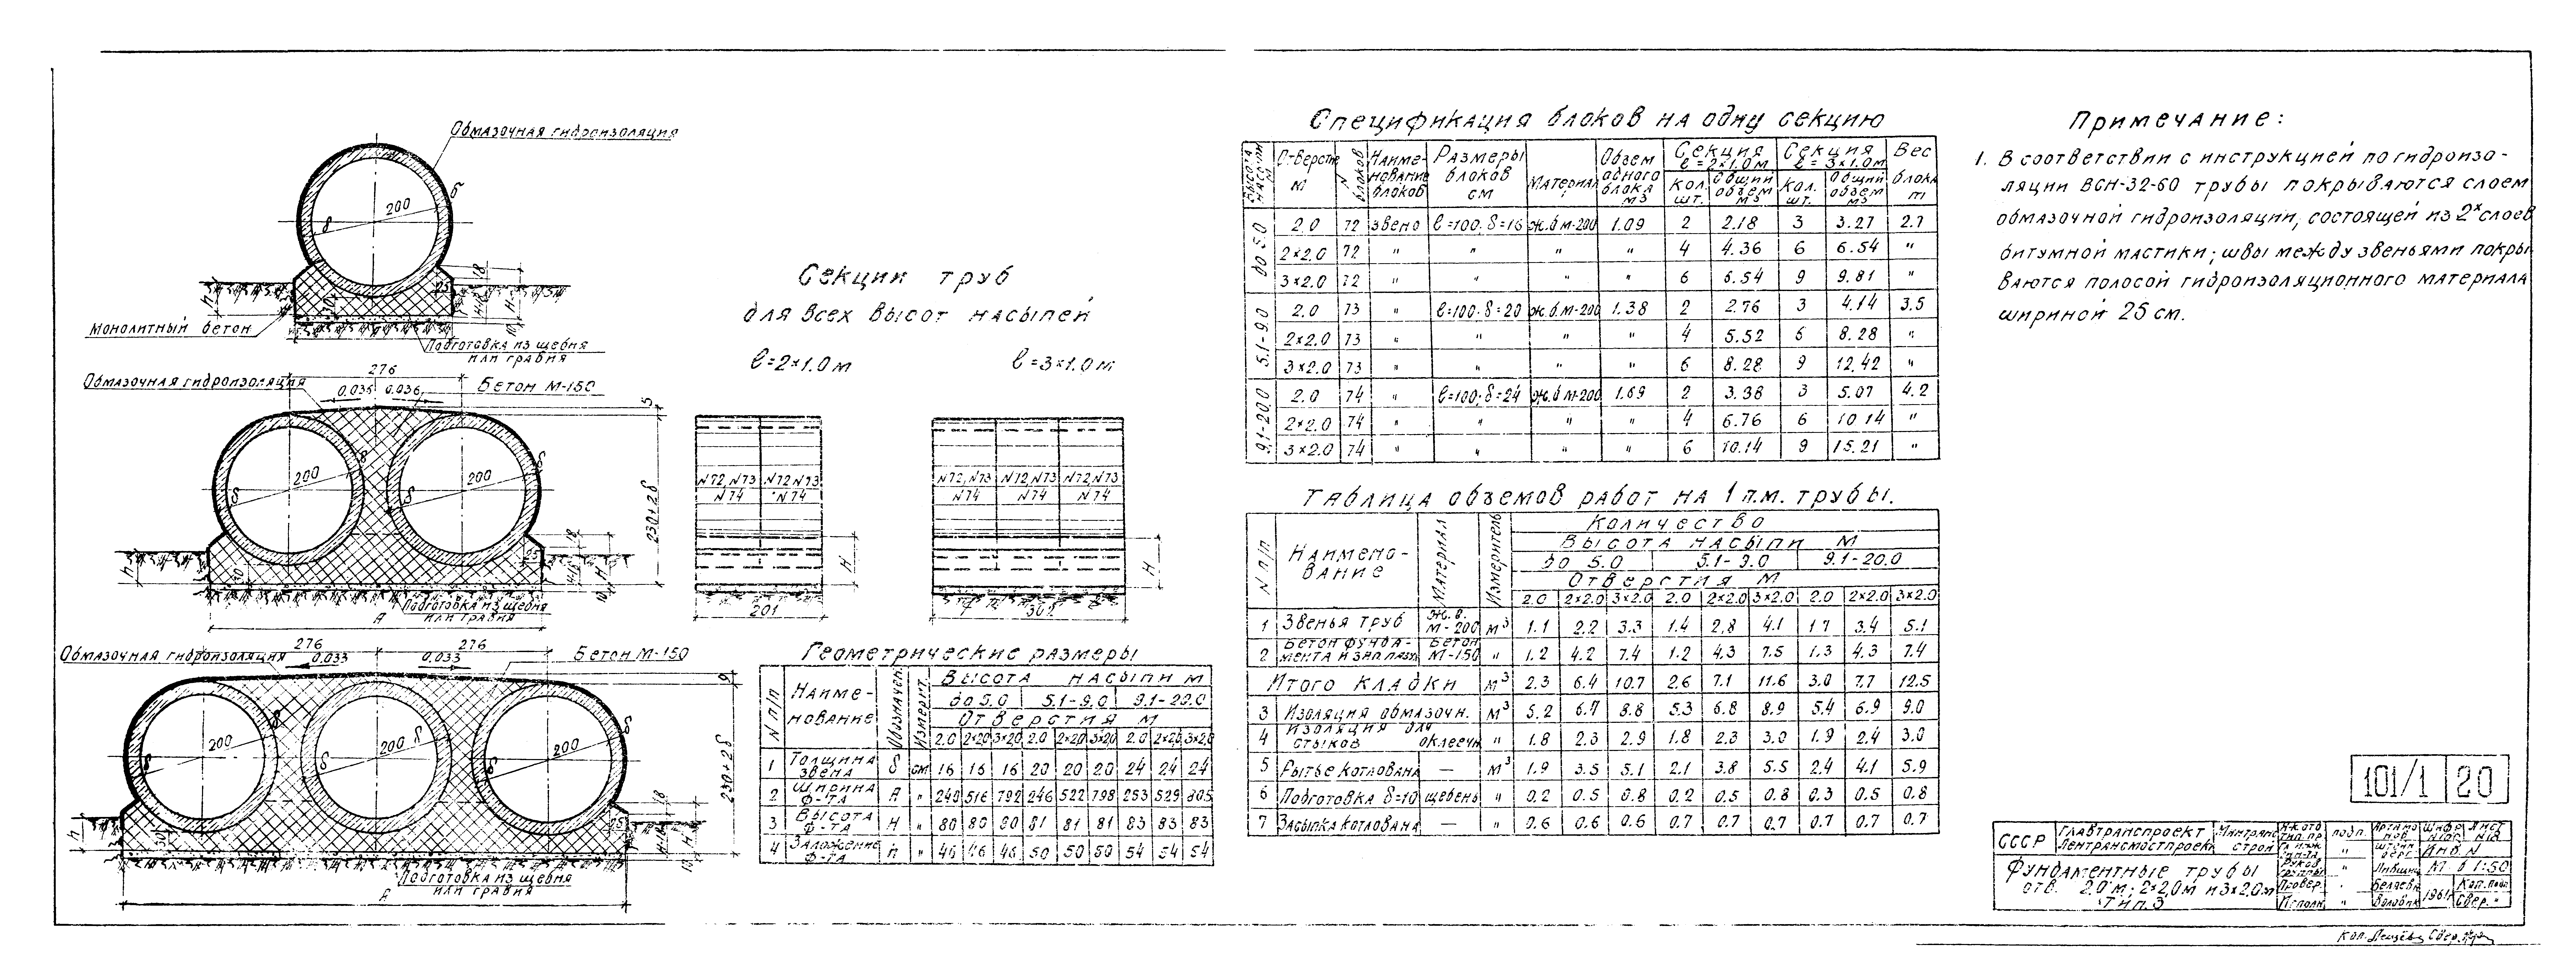 Обмазочная гидроизоляция
δ
200
δ
18
25
h
30
H-18
H
10
Монолитный бетон
Подготовка из щебня
или гравия
276
Обмазочная гидроизоляция
0.036 0.036
Бетон М-150
5
δ
200
δ
δ
200
δ
230+2δ
18
25
h
30
H-18
H
10
Подготовка из щебня
или гравия
А
276 276
Обмазочная гидроизоляция
0.033 0.033
Бетон М-150
9
δ
200
δ
200 δ
δ
200
δ
230+2δ
18
25
h
30
H
10
Подготовка из щебня
или гравия
А
Секции труб
для всех высот насыпей
ℓ=2×1.0м ℓ=3×1.0м
N72,N73 N72,N73
N74 N74
H
201
N72,N73 N72,N73 N72,N73
N74 N74 N74
H
302
Геометрические размеры
N п/п Наименование Обозначен. Измерит. Высота насыпи м
до 5.0 5.1-9.0 9.1-20.0
Отверстия м
2.0 2×2.0 3×2.0 2.0 2×2.0 3×2.0 2.0 2×2.0 3×2.0
1 Толщина звена δ см 16 16 16 20 20 20 24 24 24
2 Ширина ф-та А " 240 516 792 246 522 798 253 529 805
3 Высота ф-та H " 80 80 80 81 81 81 83 83 83
4 Заложение ф-та h " 46 46 46 50 50 50 54 54 54
Спецификация блоков на одну секцию
Высота насыпи м Отверстия м N блоков Наименование блоков Размеры блоков см Материал Объем одного блока м3 Секция ℓ=2×1.0м Секция ℓ=3×1.0м Вес блока т
Кол. шт. Общий объем м3 Кол. шт. Общий объем м3
до 5.0 2.0 72 звено ℓ=100; δ=16 ж.б м-200 1.09 2 2.18 3 3.27 2.7
2×2.0 72 " " " " 4 4.36 6 6.54 "
3×2.0 72 " " " " 6 6.54 9 9.81 "
5.1-9.0 2.0 73 " ℓ=100; δ=20 ж.б м-200 1.38 2 2.76 3 4.14 3.5
2×2.0 73 " " " 4 5.52 6 8.28 "
3×2.0 73 " " " " 6 8.28 9 12.42 "
9.1-20.0 2.0 74 " ℓ=100; δ=24 ж.б м-200 1.69 2 3.38 3 5.07 4.2
2×2.0 74 " " " " 4 6.76 6 10.14 "
3×2.0 74 " " " " 6 10.14 9 15.21 "
Таблица объемов работ на 1 п.м. трубы.
N п/п Наименование Материал Измеритель Количество
Высота насыпи м
до 5.0 5.1-9.0 9.1-20.0
Отверстия м
2.0 2×2.0 3×2.0 2.0 2×2.0 3×2.0 2.0 2×2.0 3×2.0
1 Звенья труб ж.б. М-200 м³ 1.1 2.2 3.3 1.4 2,8 4.1 1.7 3.4 5.1
2 Бетон фундамента и запазух Бетон М-150 " 1.2 4.2 7.4 1.2 4.3 7.5 1.3 4.3 7.4
Итого кладки м³ 2.3 6.4 10.7 2.6 7.1 11.6 3.0 7.7 12.5
3 Изоляция обмазочн. м³ 5.2 6.7 8.8 5.3 6.8 8.9 5.4 6.9 9.0
4 Изоляция для стыков оклеечн " 1.8 2.3 2.9 1.8 2.3 3.0 1.9 2.4 3.0
5 Рытье котлована — м³ 1.9 3.5 5.1 2.1 3.8 5.5 2.4 4.1 5.9
6 Подготовка δ=10 щебень " 0.2 0.5 0.8 0.2 0.5 0.8 0.3 0.5 0.8
7 Засыпка котлована — " 0.6 0.6 0.6 0.7 0.7 0.7 0.7 0.7 0.7
Примечание:
1. В соответствии с инструкцией по гидроизо-
ляции ВСН-32-60 трубы покрываются слоем
обмазочной гидроизоляции, состоящей из 2х слоев
битумной мастики; швы между звеньями покры
ваются полосой гидроизоляционного материала
шириной 25 см.
101/1 20
СССР Главтранспроект
Лентрансмостпроект Минтрансстрой
Фундаментные трубы
отв. 2.0 м; 2×2.0м и 3×2.0м
Тип. 3
подп.
Провер. Беляева
Исполн.
Инв. N
М б 1:50
1961г.
Коп.
Свер.